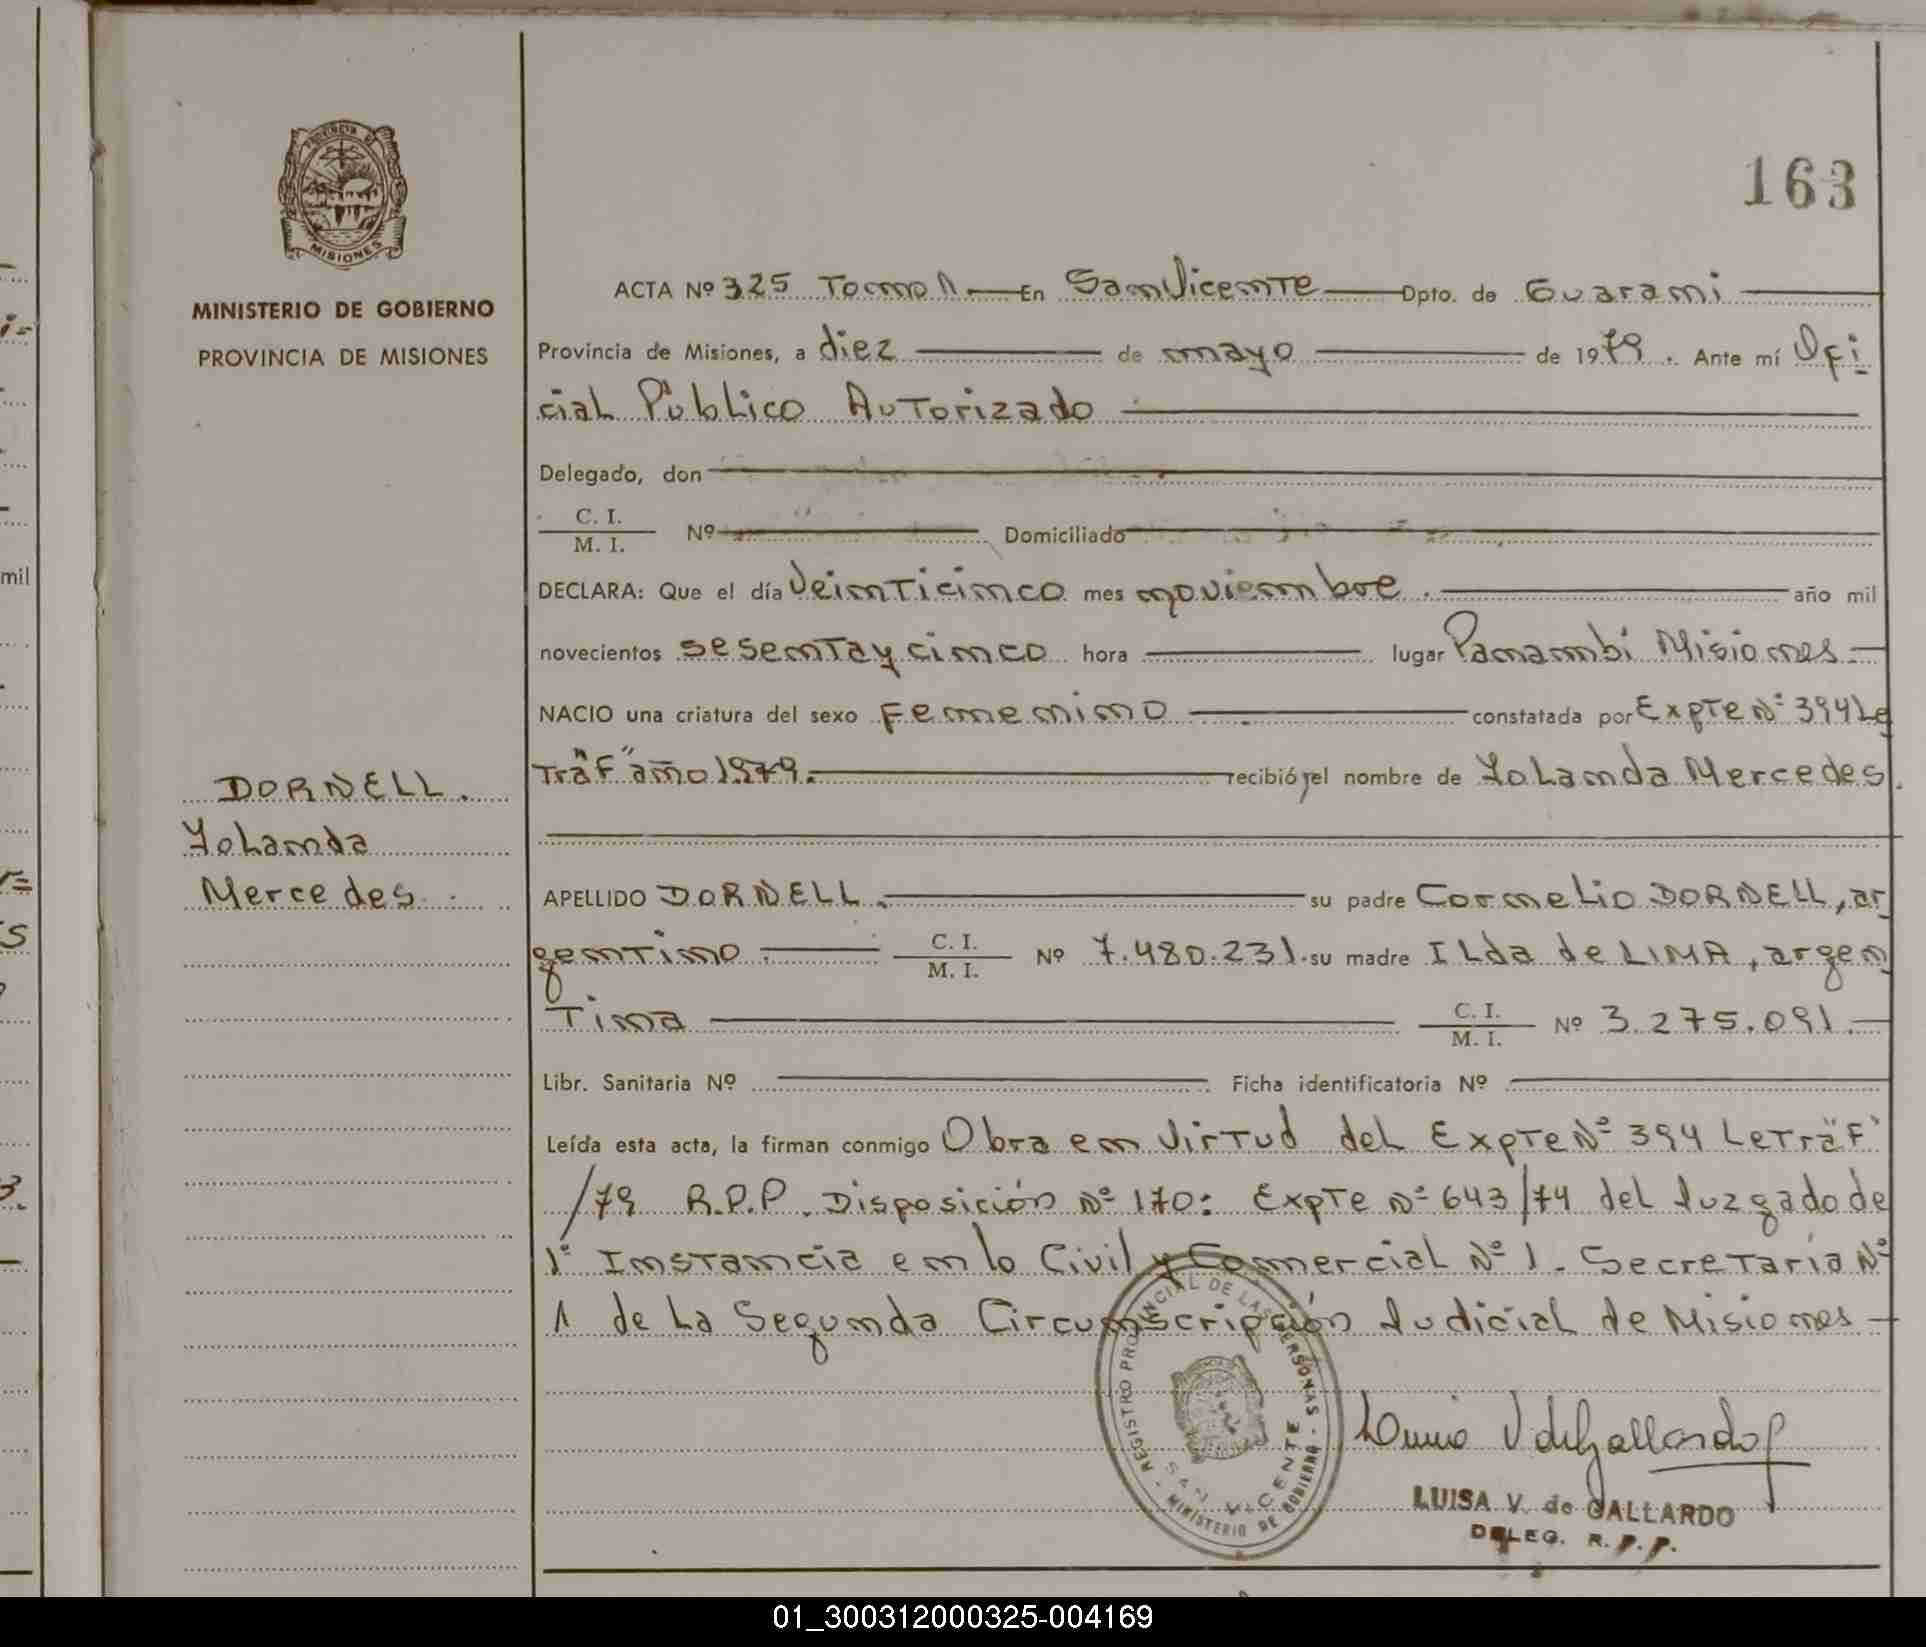 163
PROVINCIA DE
MISIONES
MINISTERIO DE GOBIERNO
PROVINCIA DE MISIONES
ACTA Nº 325 Tomo 1. En San Vicente Dpto. de Guarani
Provincia de Misiones, a diez de mayo de 1979. Ante mí Ofi
cial Público Autorizado
Delegado, don
C. I.
M. I. Nº Domiciliado
DECLARA: Que el día Veinticinco mes noviembre. año mil
novecientos sesentaycinco hora lugar Panambí Misiones
NACIO una criatura del sexo Femenino constatada por Expte Nº 394 Le
tra "F" año 1979. recibió el nombre de Yolanda Mercedes.
DORNELL.
Yolanda
Mercedes.
APELLIDO DORNELL. su padre Cornelio DORNELL, ar
gentino C. I.
M. I. Nº 7.480.231. su madre Ilda de LIMA, argen
tina C. I.
M. I. Nº 3.275.091.
Libr. Sanitaria Nº Ficha identificatoria Nº
Leída esta acta, la firman conmigo Obra en virtud del Expte Nº 394 Letra "F"
/79 R.P.P. Disposición Nº 170: Expte Nº 643/74 del Juzgado de
1º Instancia en lo Civil y Comercial Nº 1. Secretaría Nº
1 de la Segunda Circunscripción Judicial de Misiones
REGISTRO PROVINCIAL DE LAS PERSONAS - MINISTERIO DE GOBIERNO -
SAN VICENTE
LUISA V. de GALLARDO
DELEG. R. P. P.
01_300312000325-004169